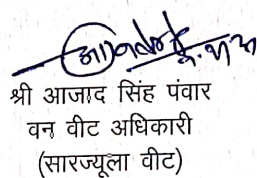 श्री आजाद सिंह पंवार
वन वीट अधिकारी
(सारज्यूला वीट)